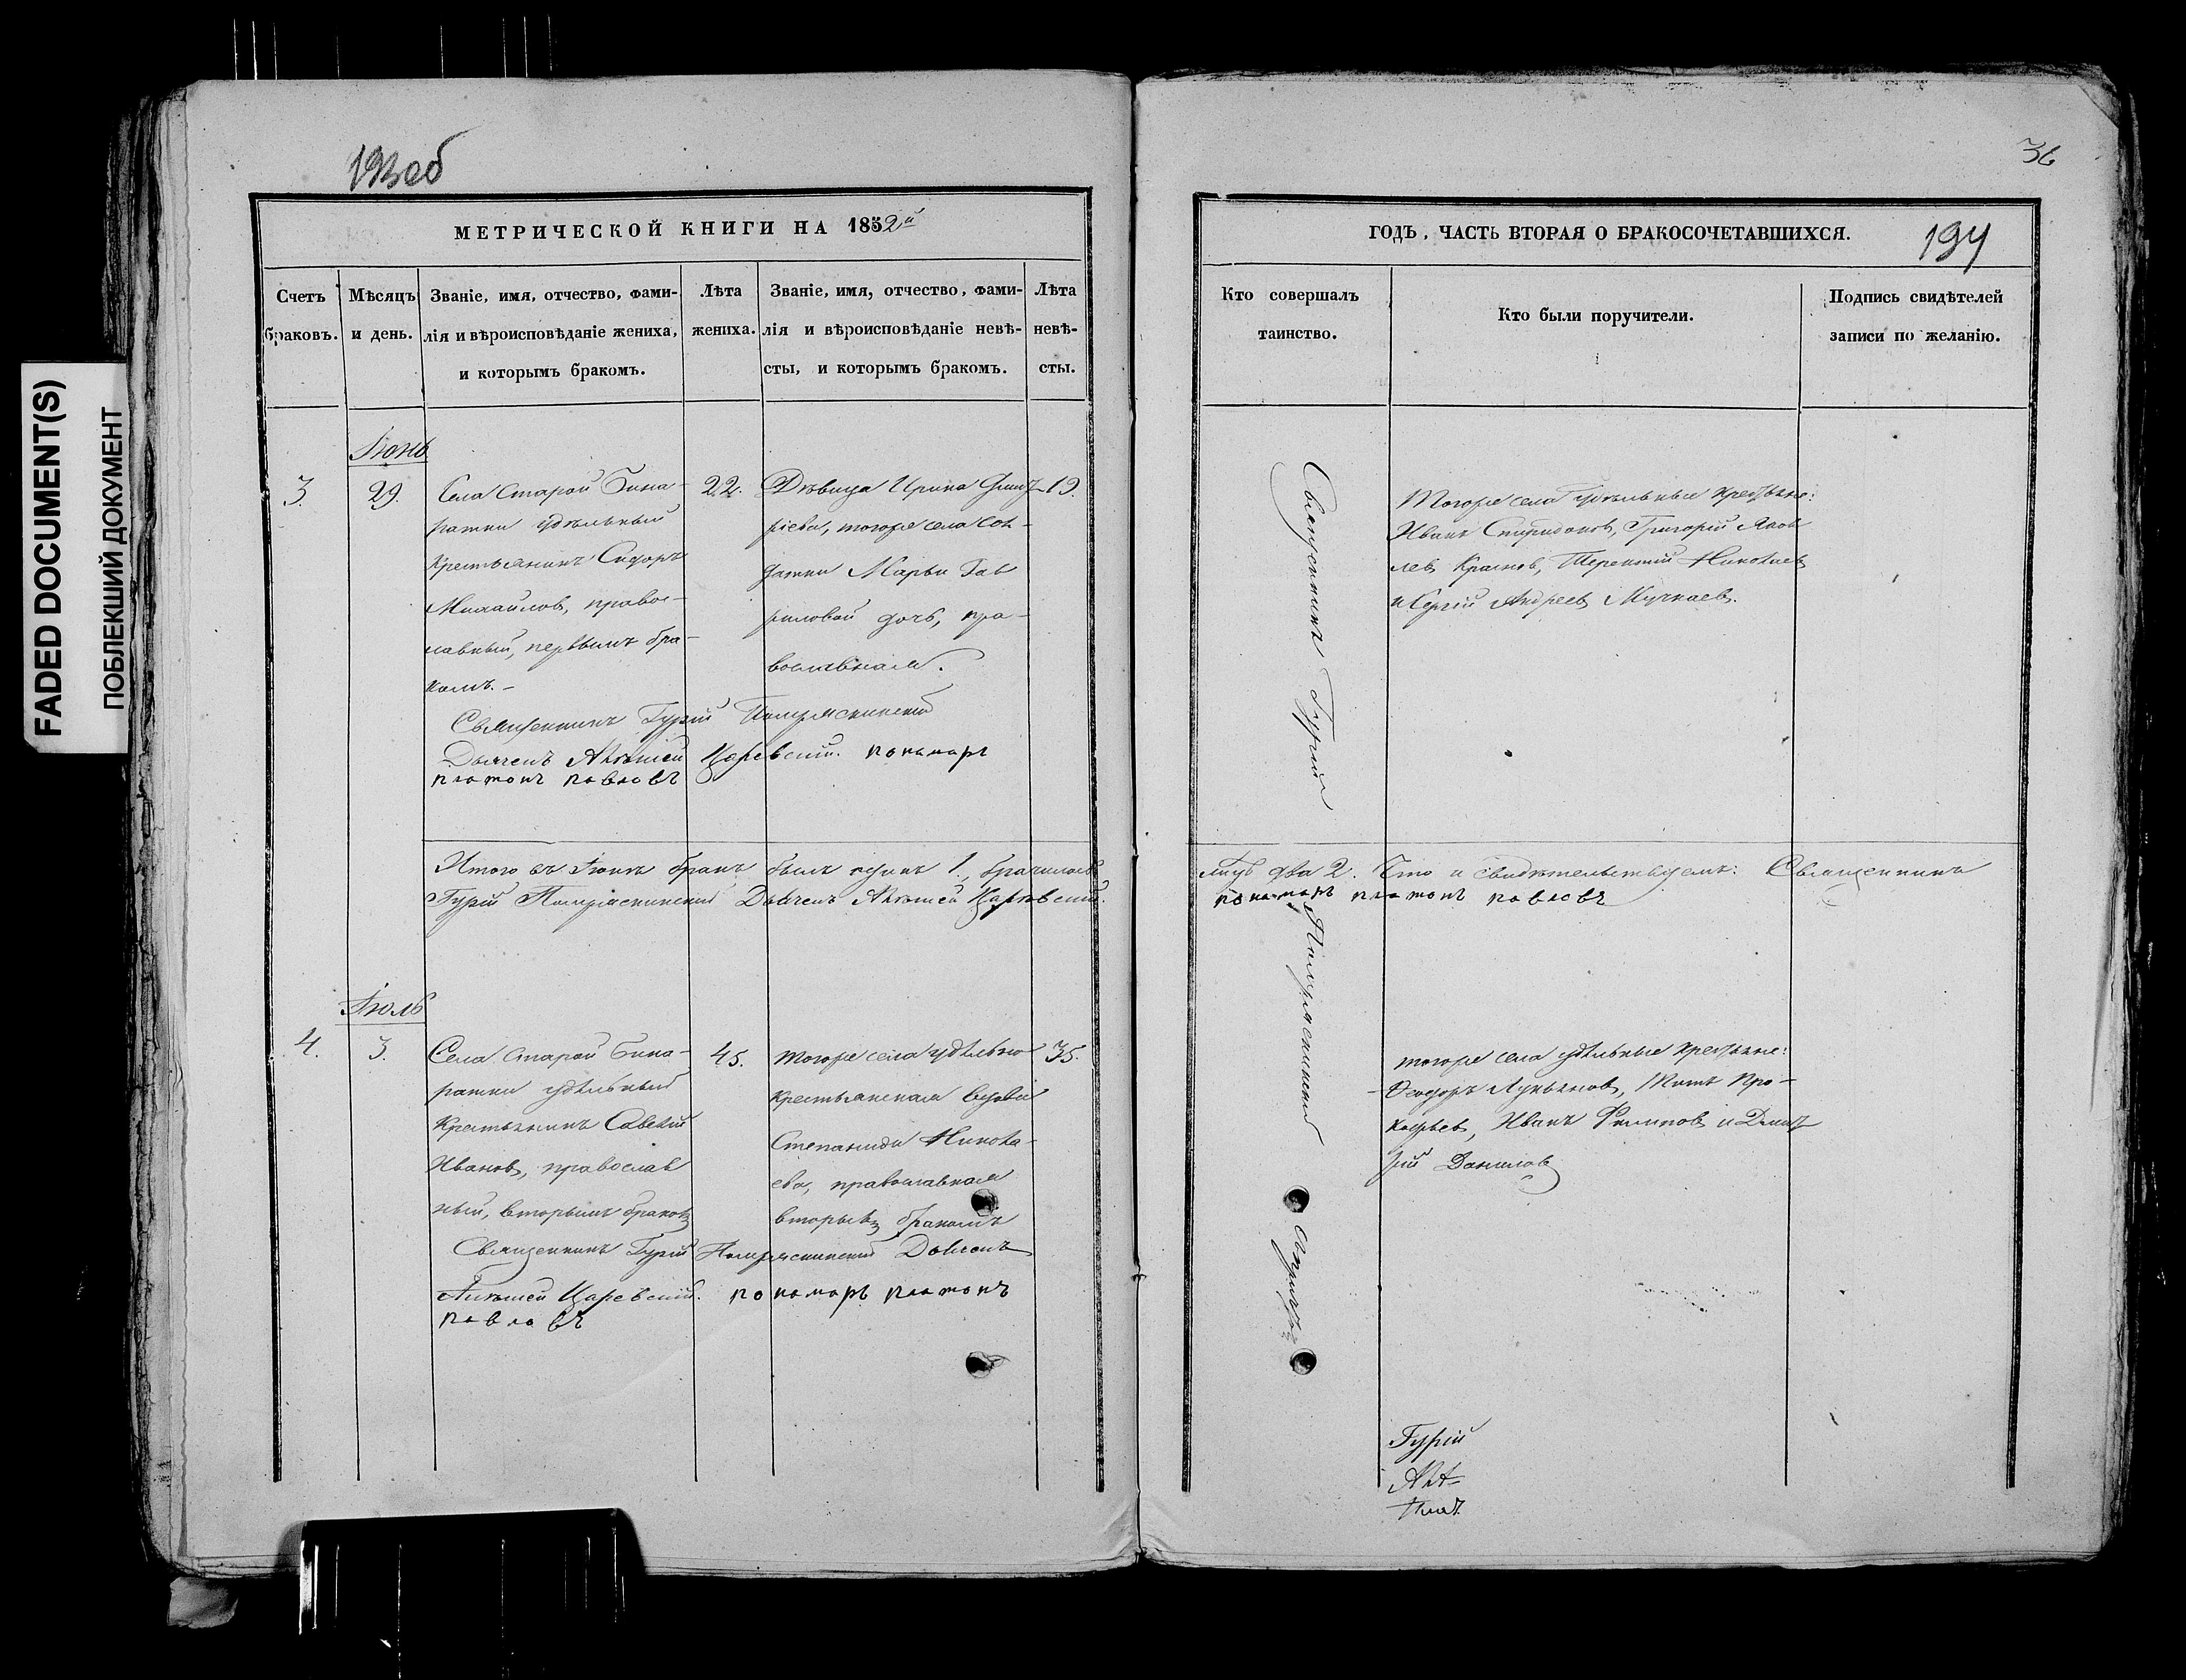 FADED DOCUMENT(S)
ПОБЛЕКШИЙ ДОКУМЕНТ
193 об
МЕТРИЧЕСКОЙ КНИГИ НА 1852й
Счетъ браковъ.
Мѣсяцъ и день.
Званіе, имя, отчество, фами-
лія и вѣроисповѣданіе жениха,
и которымъ бракомъ.
Лѣта
жениха.
Званіе, имя, отчество, фами-
лія и вѣроисповѣданіе невѣ-
сты, и которымъ бракомъ.
Лѣта
невѣ-
сты.
Іюнь
3.
29.
Села Старой Бина-
ратки удѣльный
крестьянинъ Сидоръ
Михайловъ, правос-
лавный, первымъ бра-
комъ.-
22.
Дѣвица Ирина
того же села Сол-
датки Марьи Гав
риловой дочь, пра-
вославная.
19.
Священникъ Гурій
Дьячекъ Алексѣй Царевскій. пономарь
платонъ павловъ
Итого въ Іюнѣ бракъ былъ одинъ 1.,
Гурій
Дьячекъ Алексѣй Царевскій.
Іюль
4.
3.
Села Старой Бина-
ратки удѣльный
крестьянинъ Савелій
Ивановъ, православ
ный, вторымъ бракомъ
45.
того же села удѣльна
крестьянская вдова
Степанида Никола-
ева, православная
вторымъ бракомъ
35.
Священникъ Гурій
Дьячекъ
Алексѣй Царевскій. пономарь платонъ
павловъ
36
ГОДЪ, ЧАСТЬ ВТОРАЯ О БРАКОСОЧЕТАВШИХСЯ.
194
Кто совершалъ
таинство.
Кто были поручители.
Подпись свидѣтелей
записи по желанію.
Священникъ Гурій
Того же села удѣльные крестьяне:
Иванъ Спиридоновъ, Григорій Яков
левъ Терентій Николаевъ
и Сергій Андреевъ Мучкаевъ.
лицъ два 2. Что и свидѣтельствуемъ: Священникъ
пономарь платонъ павловъ
того же села удѣльные крестьяне:
Феодоръ Лукьяновъ, Титъ Про-
кофьевъ, Иванъ Филиповъ и Дмит
рій Даниловъ
Гурій